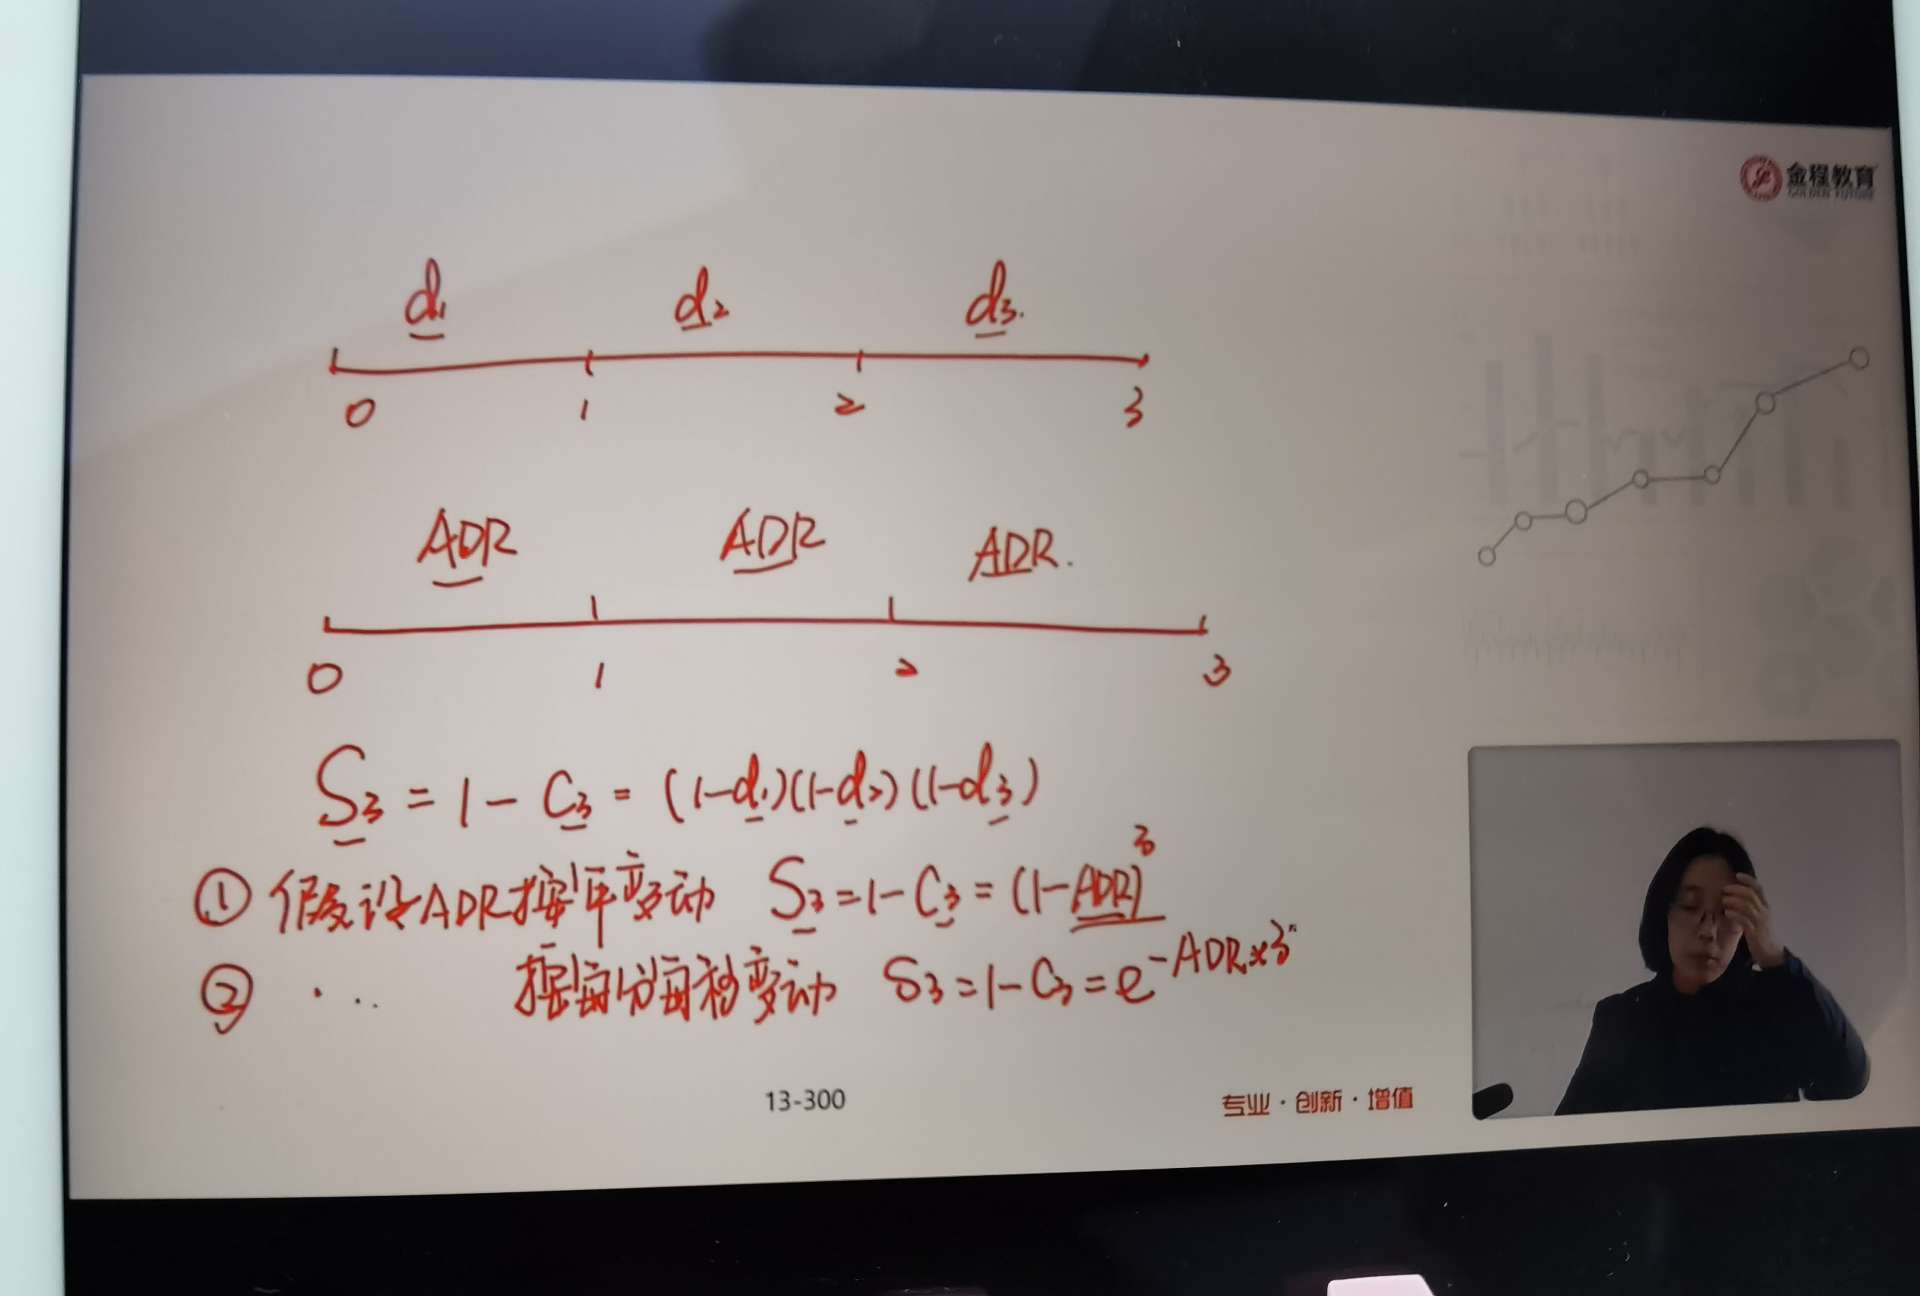 金程教育
GOLDEN FUTURE
d₁ d₂ d₃.
0 1 2 3
ADR ADR ADR.
0 1 2 3
S₃ = 1 - C₃ = (1-d₁)(1-d₂)(1-d₃)
① 假设ADR按年变动 S₃ = 1 - C₃ = (1-ADR)³
② · ·· 按每分每秒变动 S₃ = 1 - C₃ = e^(-ADR×3)
13-300
专业·创新·增值